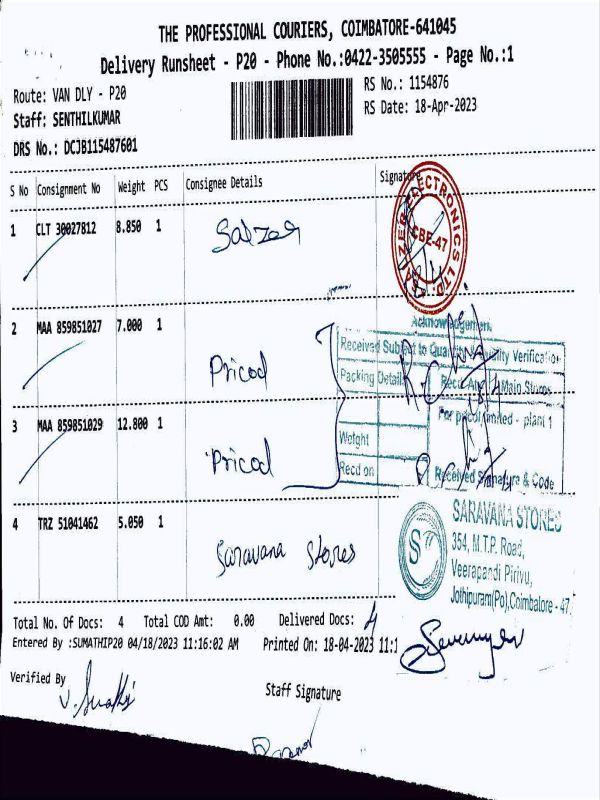 THE PROFESSIONAL COURIERS, COIMBATORE-641045
Delivery Runsheet - P20 - Phone No.:0422-3505555 - Page No.:1
Route: VAN DLY - P20
RS No.: 1154876
Staff: SENTHILKUMAR
RS Date: 18-Apr-2023
DRS No.: DCJB115487601
S No Consignment No Weight PCS Consignee Details Signature
1 CLT 30027812 8.850 1 Salzer
ELECTRONICS LTD.
CBE-47
2 MAA 859851027 7.000 1 Pricol
Acknowledgement
Received Subject to Quantity Quality Verification
Packing Details Main Stores
3 MAA 859851029 12.800 1 Pricol
For pricol limited - plant 1
Weight
Recd on Received Signature & Code
4 TRZ 51041462 5.050 1 Saravana Stores
SARAVANA STORES
354, M.T.P. Road,
Veerapandi Pirivu,
Jothipuram(Po),Coimbatore - 47
Total No. Of Docs: 4 Total COD Amt: 0.00 Delivered Docs: 4
Entered By :SUMATHIP20 04/18/2023 11:16:02 AM Printed On: 18-04-2023 11:1
Verified By
Staff Signature